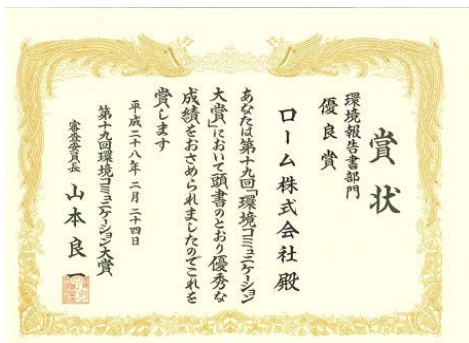 賞状
環境報告書部門
優良賞
ローム株式会社殿
あなたは第十九回「環境コミュニケーション
大賞」において頭書のとおり優秀な
成績をおさめられましたのでこれを
賞します
平成二十八年二月二十四日
第十九回環境コミュニケーション大賞
審査委員長 山本良一